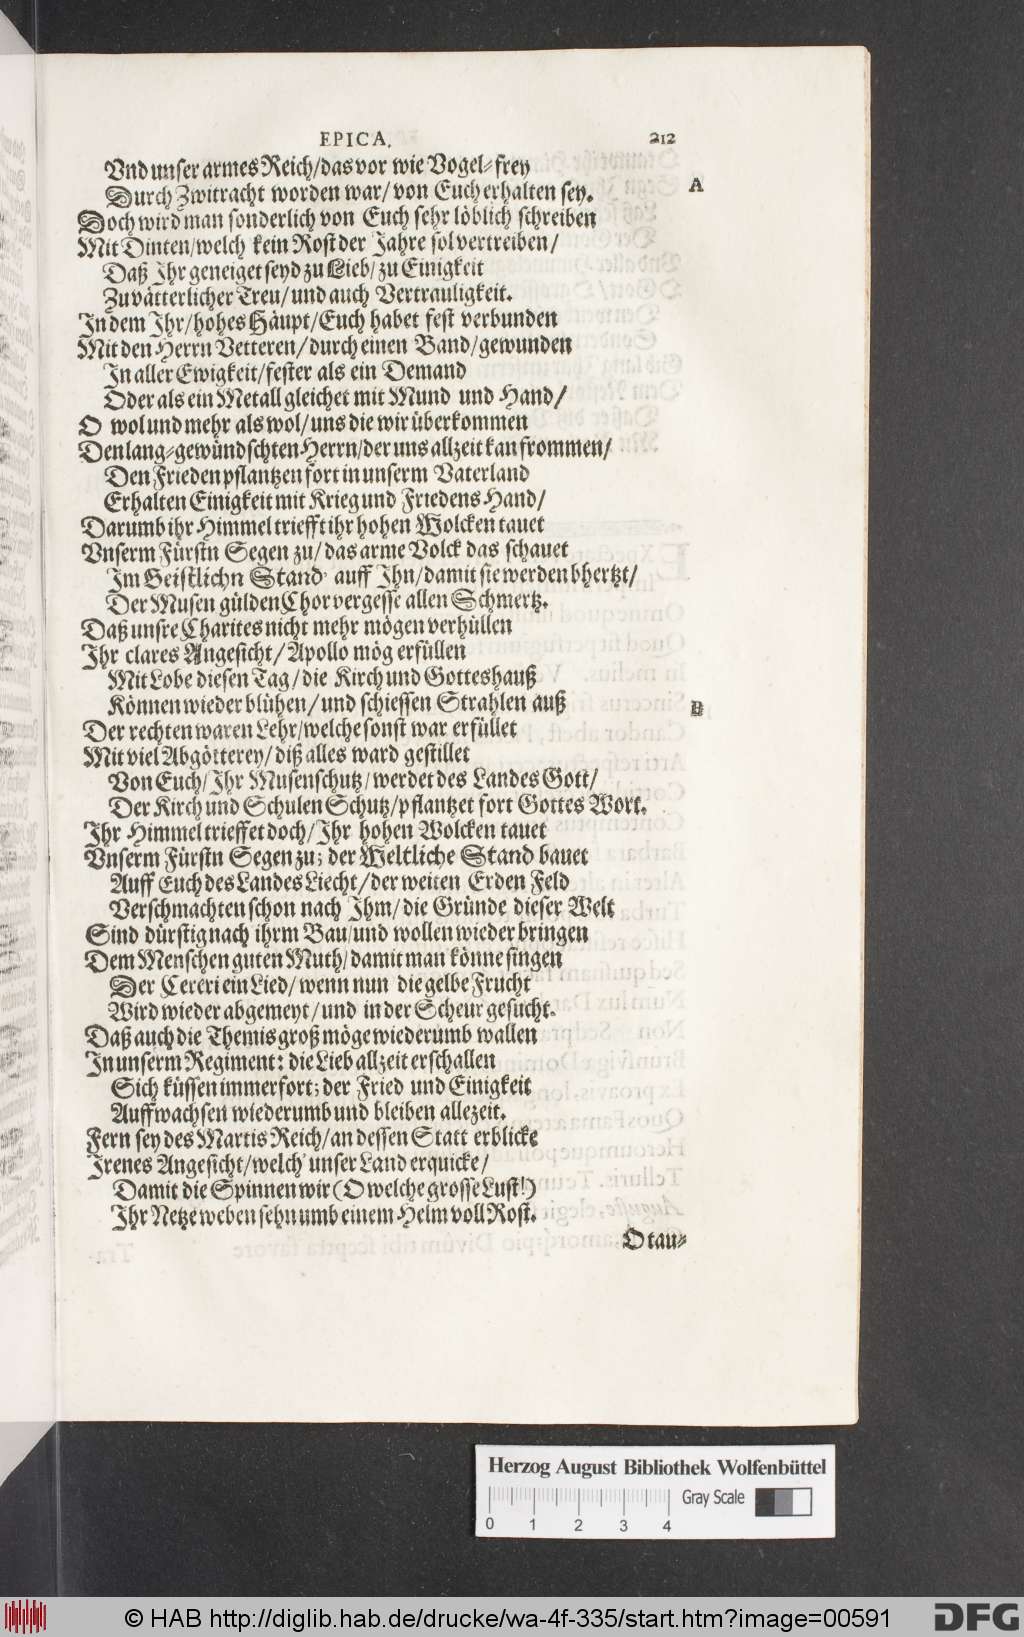 EPICA. 212
Vnd unser armes Reich/das vor wie Vogel-frey
A
Durch Zwitracht worden war/ von Euch erhalten sey.
Doch wird man sonderlich von Euch sehr löblich schreiben
Mit Dinten/welch kein Rost der Jahre sol vertreiben/
Daß Ihr geneiget seyd zu Lieb/ zu Einigkeit
Zu vätterlicher Treu/ und auch Vertrauligkeit.
In dem Ihr/hohes Häupt/Euch habet fest verbunden
Mit den Herrn Vetteren/durch einen Band/gewunden
In aller Ewigkeit/fester als ein Demand
Oder als ein Metall gleichet mit Mund und Hand/
O wol und mehr als wol/ uns die wir überkommen
Den lang-gewündschten Herrn/der uns allzeit kan frommen/
Den Frieden pflantzen fort in unserm Vaterland
Erhalten Einigkeit mit Krieg und Friedens Hand/
Darumb ihr Himmel triefft ihr hohen Wolcken tauet
Vnserm Fürstn Segen zu/ das arme Volck das schauet
Im Geistlichn Stand auff Ihn/damit sie werden bhertzt/
Der Musen gülden Chor vergesse allen Schmertz.
Daß unsre Charites nicht mehr mögen verhüllen
Ihr clares Angesicht/ Apollo mög erfüllen
Mit Lobe diesen Tag/die Kirch und Gotteshauß
Können wieder blühen/ und schiessen Strahlen auß
B
Der rechten waren Lehr/welche sonst war erfüllet
Mit viel Abgötterey/ diß alles ward gestillet
Von Euch/Ihr Musenschutz/werdet des Landes Gott/
Der Kirch und Schulen Schutz/pflantzet fort Gottes Wort.
Ihr Himmel trieffet doch/Ihr hohen Wolcken tauet
Vnserm Fürstn Segen zu; der Weltliche Stand bauet
Auff Euch des Landes Liecht/der weiten Erden Feld
Verschmachten schon nach Ihm/die Gründe dieser Welt
Sind dürstig nach ihrm Bau/und wollen wieder bringen
Dem Menschen guten Muth/damit man könne singen
Der Cereri ein Lied/ wenn nun die gelbe Frucht
Wird wieder abgemeyt/und in der Scheur gesucht.
Daß auch die Themis groß möge wiederumb wallen
In unserm Regiment: die Lieb allzeit erschallen
Sich küssen immerfort; der Fried und Einigkeit
Auffwachsen wiederumb und bleiben allezeit.
Fern sey des Martis Reich/an dessen Statt erblicke
Irenes Angesicht/welch unser Land erquicke/
Damit die Spinnen wir (O welche grosse Lust!)
Ihr Netze weben sehn umb einem Helm voll Rost.
O tau-
Herzog August Bibliothek Wolfenbüttel
Gray Scale
0 1 2 3 4
© HAB http://diglib.hab.de/drucke/wa-4f-335/start.htm?image=00591
DFG